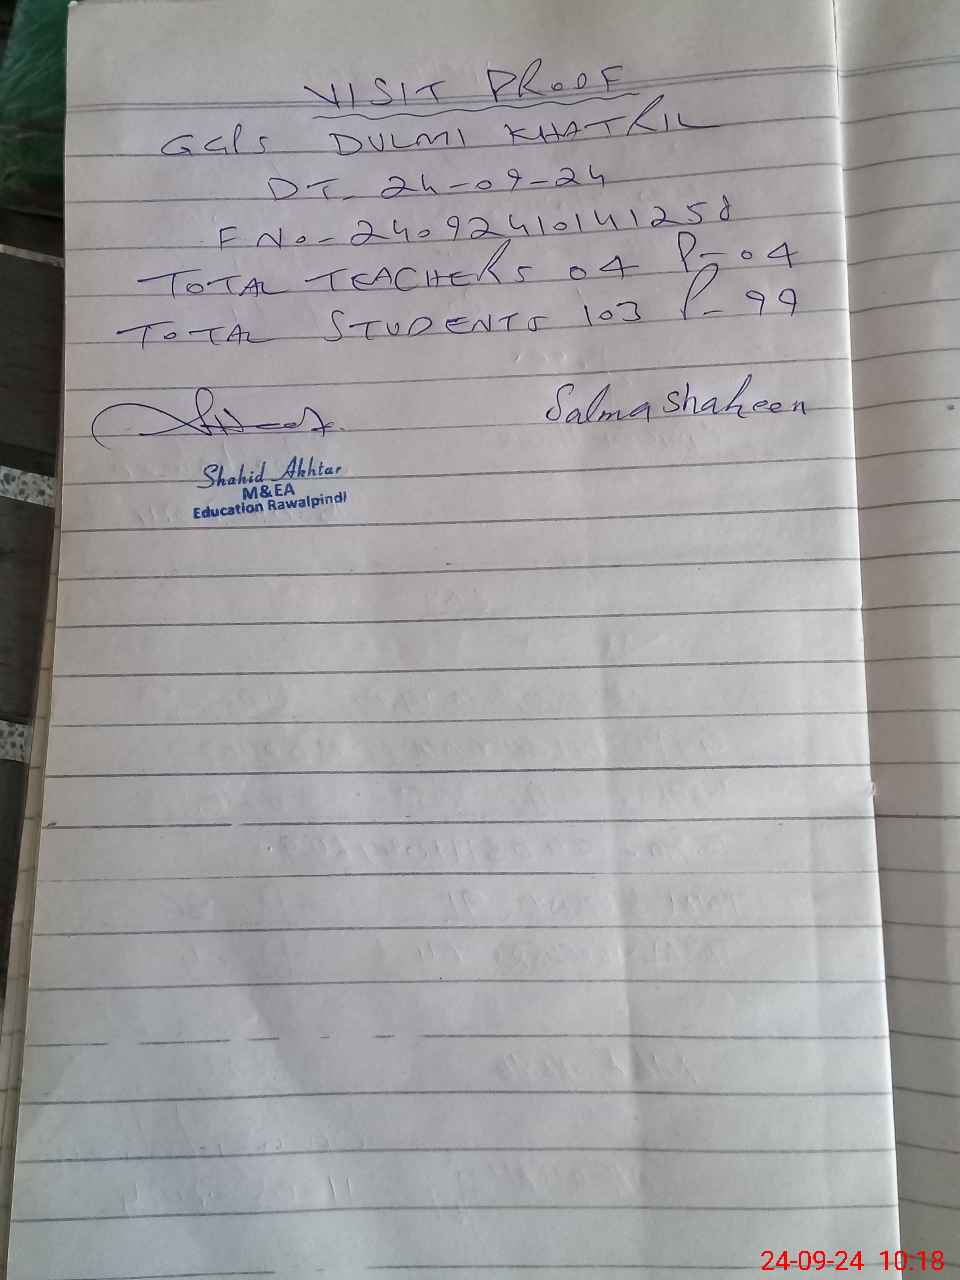 VISIT PROOF
GGPS DULMI KHATRIL
DT. 24-09-24
F No- 24092410141258
TOTAL TEACHERS 04 P- 04
TOTAL STUDENTS 103 P- 99
Salma Shaheen
Shahid Akhtar
M&EA
Education Rawalpindi
24-09-24 10:18